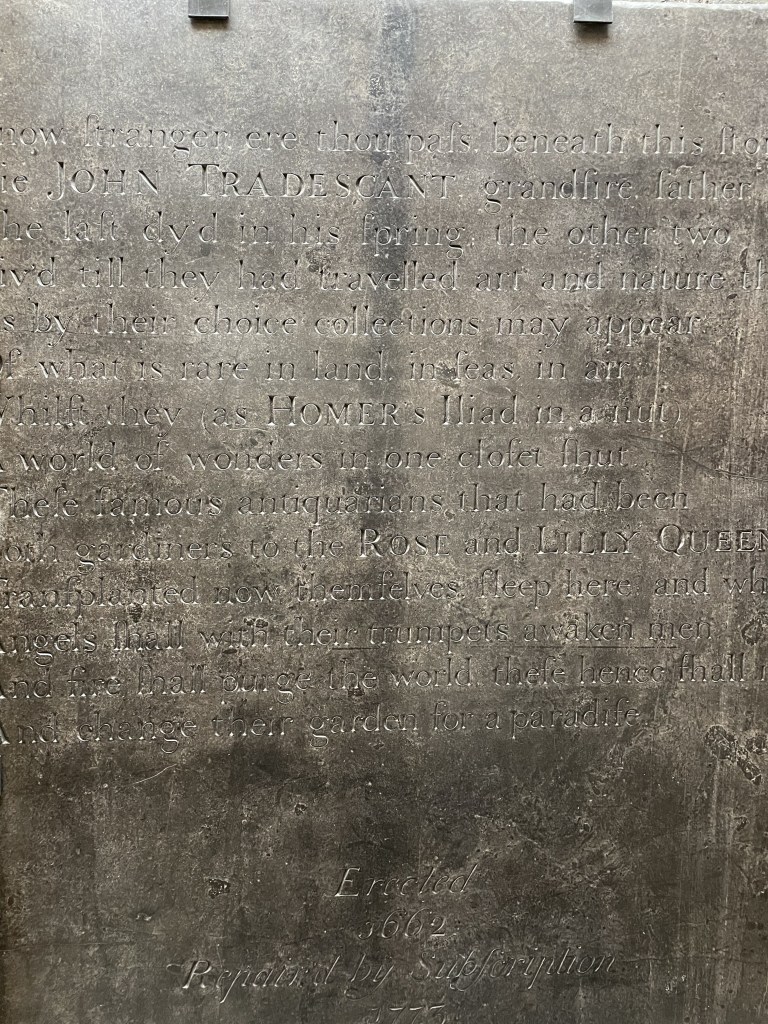 now ſtranger, ere thou paſs, beneath this ſto
ie JOHN TRADESCANT grandſire, father
he laſt dy'd in his ſpring, the other two
iv'd till they had travelled art and nature th
s by their choice collections may appear
f what is rare in land, in ſeas, in air
Whilſt they (as HOMER's Iliad in a nut)
A world of wonders in one cloſet ſhut
Theſe famous antiquarians that had been
oth gardiners to the ROSE and LILLY QUEEN
Tranſplanted now themſelves, ſleep here, and wh
Angels ſhall with their trumpets awaken men
And fire ſhall purge the world, theſe hence ſhall
And change their garden for a paradiſe.
Erected
1662.
Repair'd by Subſcription
1773.